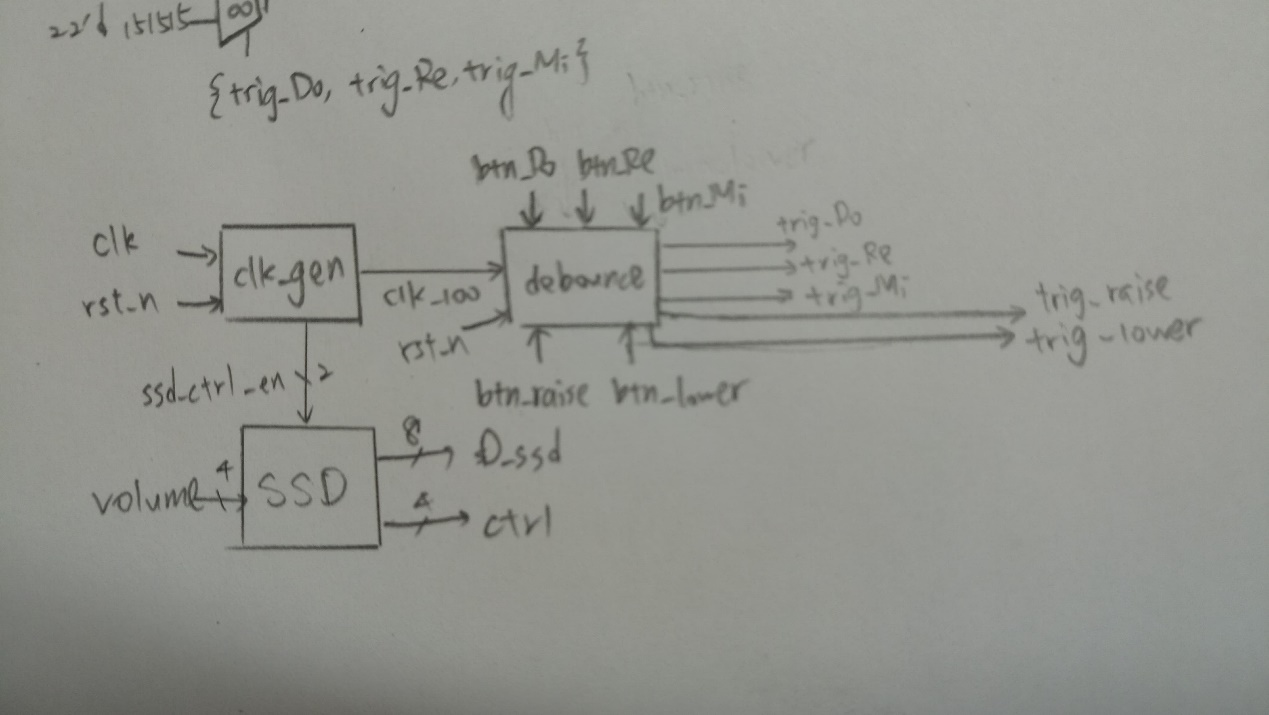 22'd 151515 001
{trig_Do, trig_Re, trig_Mi}
btn_Do btn_Re
btn_Mi
clk
rst_n
clk_gen
clk_100
rst_n
debounce
trig_Do
trig_Re
trig_Mi
trig_raise
trig_lower
btn_raise btn_lower
ssd_ctrl_en 2
volume 4
SSD
8 D_ssd
4 ctrl